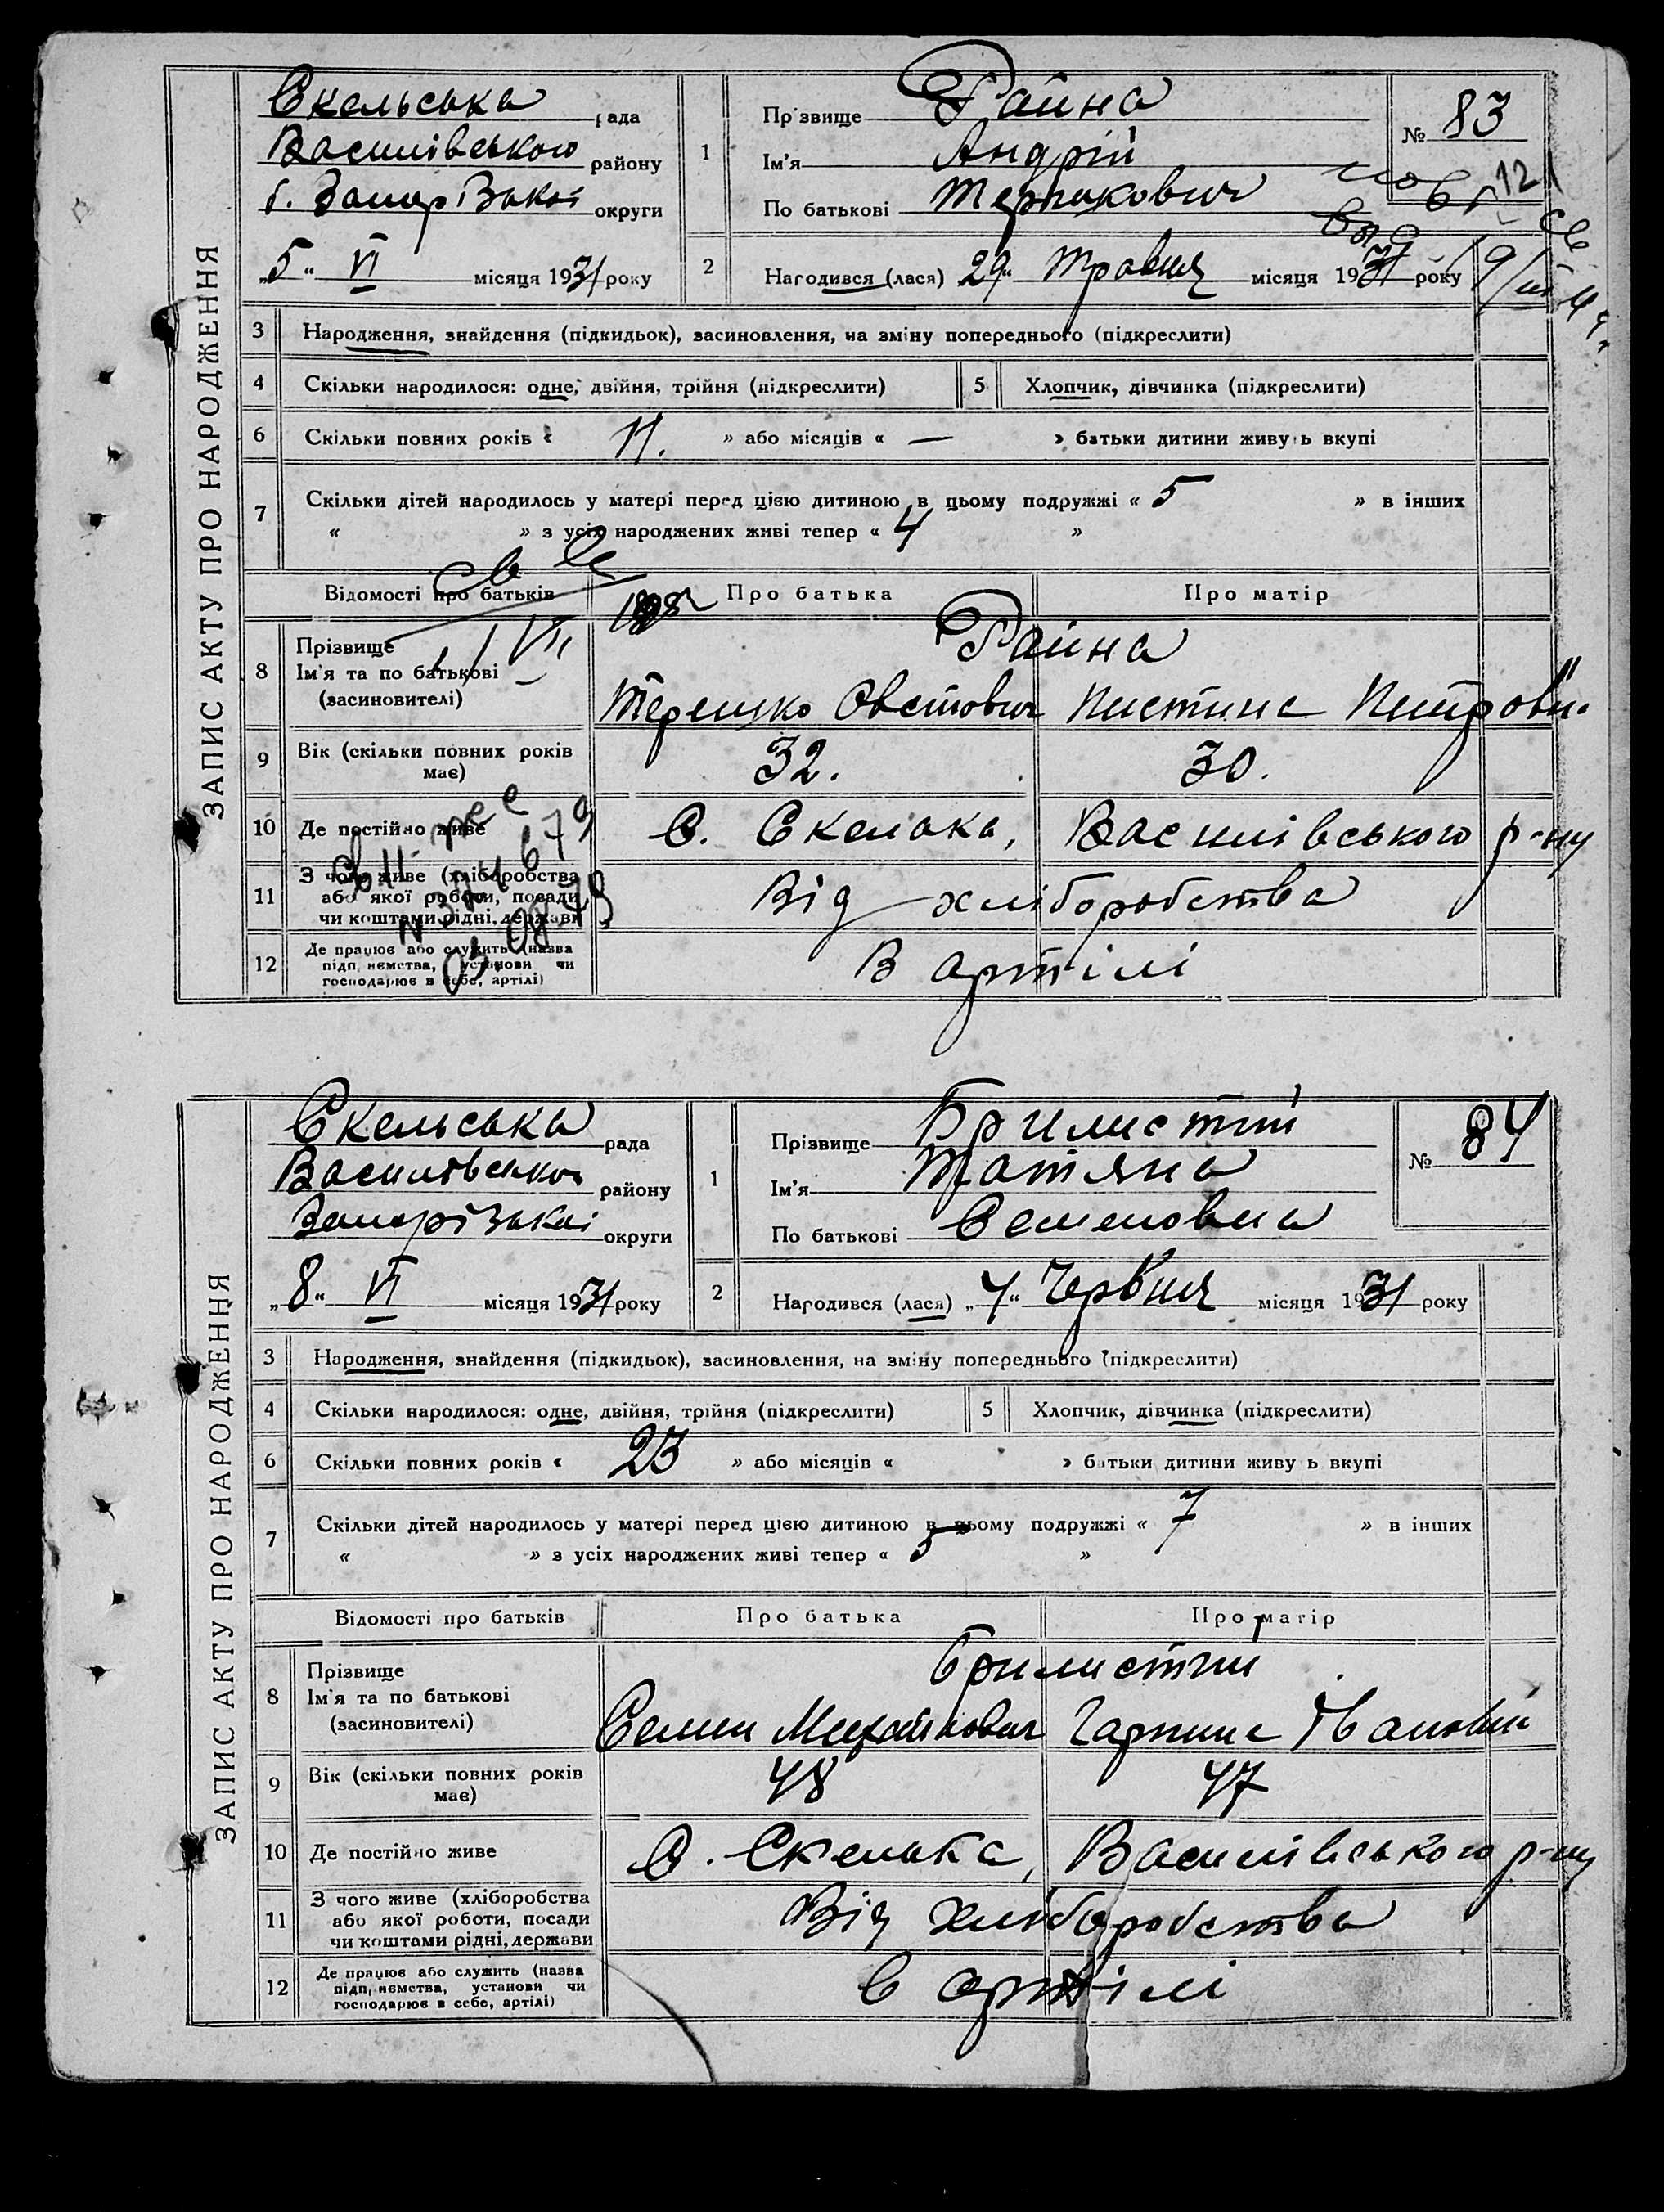 ЗАПИС АКТУ ПРО НАРОДЖЕННЯ
Скельська рада
Василівського району
б. Запорізької округи
„5“ VI місяця 1931 року
1 Прізвище Райна
Ім'я Андрій
По батькові
№ 83
2 Народився (лася) 29“ Травня місяця 1931 року
3 Народження, знайдення (підкидьок), засиновлення, на зміну попереднього (підкреслити)
4 Скільки народилося: одне, двійня, трійня (підкреслити) 5 Хлопчик, дівчинка (підкреслити)
6 Скільки повних років « 11. » або місяців « — » батьки дитини живуть вкупі
7 Скільки дітей народилось у матері перед цією дитиною в цьому подружжі « 5 » в інших
« » з усіх народжених живі тепер « 4 »
Відомості про батьків Про батька Про матір
8 Прізвище Райна
Ім'я та по батькові
(засиновителі)
9 Вік (скільки повних років має) 32. 30.
10 Де постійно живе С. Скелька, Василівського р-ну
11 З чого живе (хліборобства або якої роботи, посади чи коштами рідні, держави Від хліборобства
12 Де працює або служить (назва підприємства, установи чи господарює в себе, артілі) В артілі
ЗАПИС АКТУ ПРО НАРОДЖЕННЯ
Скельська рада
Василівського району
Запорізької округи
„8“ VI місяця 1931 року
1 Прізвище Брилистий
Ім'я Татяна
По батькові Семеновна
№ 84
2 Народився (лася) „4“ Червня місяця 1931 року
3 Народження, знайдення (підкидьок), засиновлення, на зміну попереднього (підкреслити)
4 Скільки народилося: одне, двійня, трійня (підкреслити) 5 Хлопчик, дівчинка (підкреслити)
6 Скільки повних років « 23 » або місяців « » батьки дитини живуть вкупі
7 Скільки дітей народилось у матері перед цією дитиною в цьому подружжі « 7 » в інших
« » з усіх народжених живі тепер « 5 »
Відомості про батьків Про батька Про матір
8 Прізвище Брилистий
Ім'я та по батькові Семен Михайлович
(засиновителі)
9 Вік (скільки повних років має) 48 47
10 Де постійно живе С. Скелька, Василівського р-ну
11 З чого живе (хліборобства або якої роботи, посади чи коштами рідні, держави Від хліборобства
12 Де працює або служить (назва підприємства, установи чи господарює в себе, артілі) в артілі